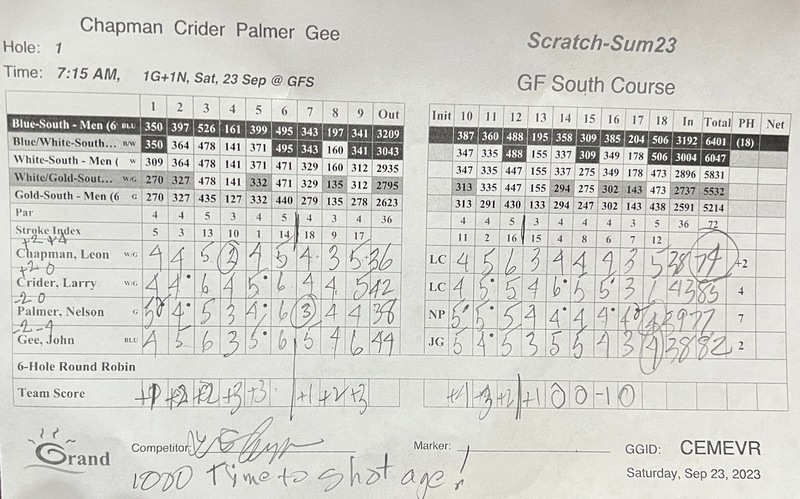 Chapman Crider Palmer Gee
Scratch-Sum23
Hole: 1
Time: 7:15 AM, 1G+1N, Sat, 23 Sep @ GFS
GF South Course
1 2 3 4 5 6 7 8 9 Out Init 10 11 12 13 14 15 16 17 18 In Total PH Net
Blue-South - Men (6 BLU 350 397 526 161 399 495 343 197 341 3209 387 360 488 195 358 309 385 204 506 3192 6401 (18)
Blue/White-South... B/W 350 364 478 141 371 495 343 160 341 3043 347 335 488 155 337 309 349 178 506 3004 6047
White-South - Men ( W 309 364 478 141 371 471 329 160 312 2935 347 335 447 155 337 275 349 178 473 2896 5831
White/Gold-Sout... W/G 270 327 478 141 332 471 329 135 312 2795 313 335 447 155 294 275 302 143 473 2737 5532
Gold-South - Men (6 G 270 327 435 127 332 440 279 135 278 2623 313 291 430 133 294 247 302 143 438 2591 5214
Par 4 4 5 3 4 5 4 3 4 36 4 4 5 3 4 4 4 3 5 36 72
Stroke Index 5 3 13 10 1 14 18 9 17 11 2 16 15 4 8 6 7 12
+2 +4
Chapman, Leon W/G 4 4 5 2 4 5 4 3 5 36 LC 4 5 6 3 4 4 4 3 5 38 74 +2
+2 0
Crider, Larry W/G 4 4 6 4 5 6 4 4 5 42 LC 4 5 5 4 6 5 5 3 43 85 4
-2 0
Palmer, Nelson G 5 4 5 3 4 6 3 4 4 38 NP 5 5 5 4 4 4 4 4 39 77 7
-2 -4
Gee, John BLU 4 5 6 3 5 6 5 4 6 44 JG 5 4 5 3 5 5 4 3 4 38 82 2
6-Hole Round Robin
Team Score +1 +2 +2 +3 +3 +1 +2 +3 +4 +3 +2 +1 0 0 -1 0
Grand
Competitor:
Marker:
GGID: CEMEVR
1000 Time to shot age!
Saturday, Sep 23, 2023